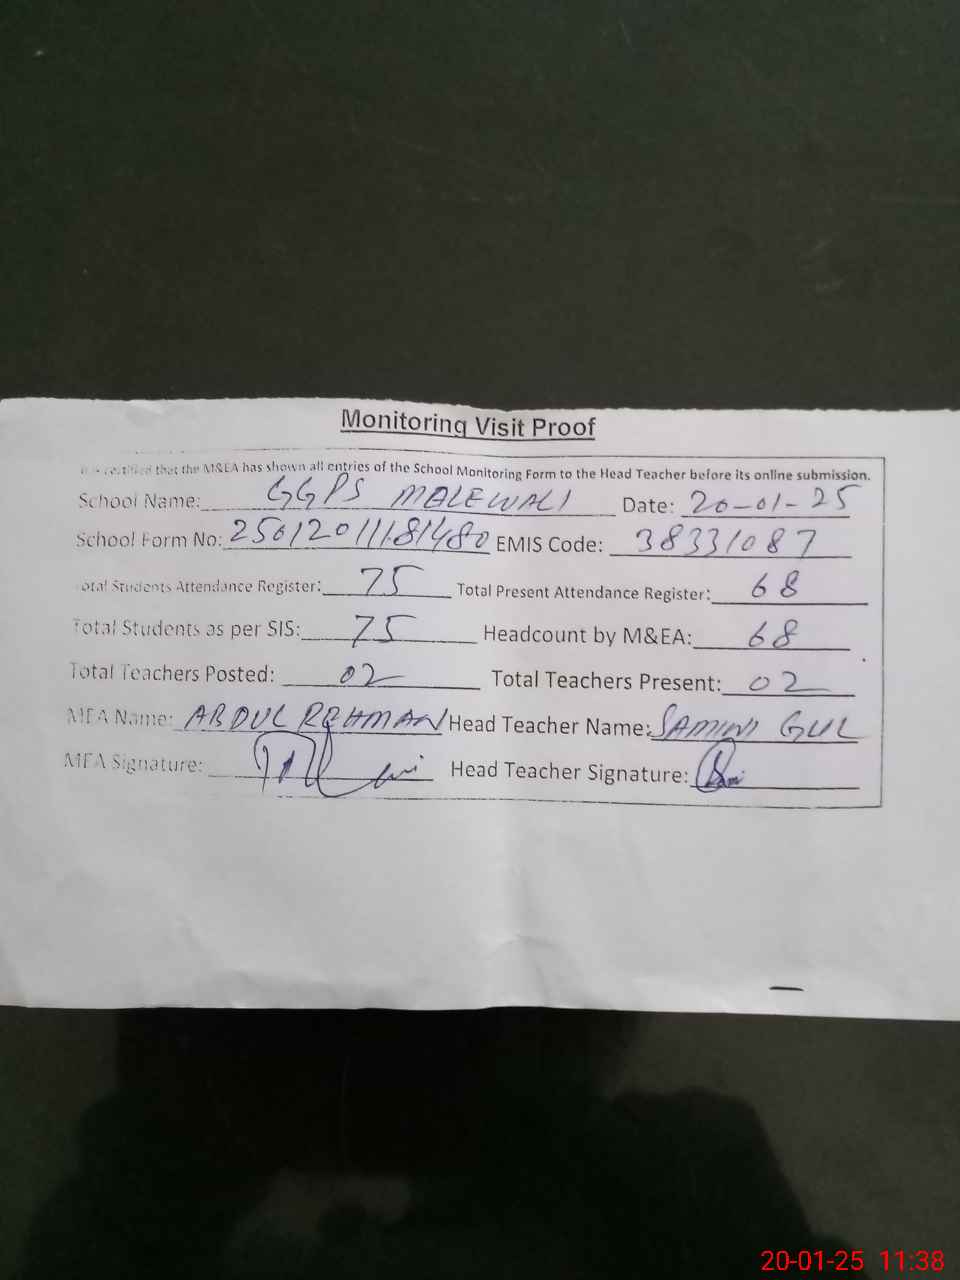 Monitoring Visit Proof
It is certified that the M&EA has shown all entries of the School Monitoring Form to the Head Teacher before its online submission.
School Name: GGPS MALEWALI Date: 20-01-25
School Form No: 25012011181480 EMIS Code: 38331087
Total Students Attendance Register: 75 Total Present Attendance Register: 68
Total Students as per SIS: 75 Headcount by M&EA: 68
Total Teachers Posted: 02 Total Teachers Present: 02
MEA Name: ABDUL REHMAN Head Teacher Name: GUL
MEA Signature: Head Teacher Signature:
20-01-25 11:38